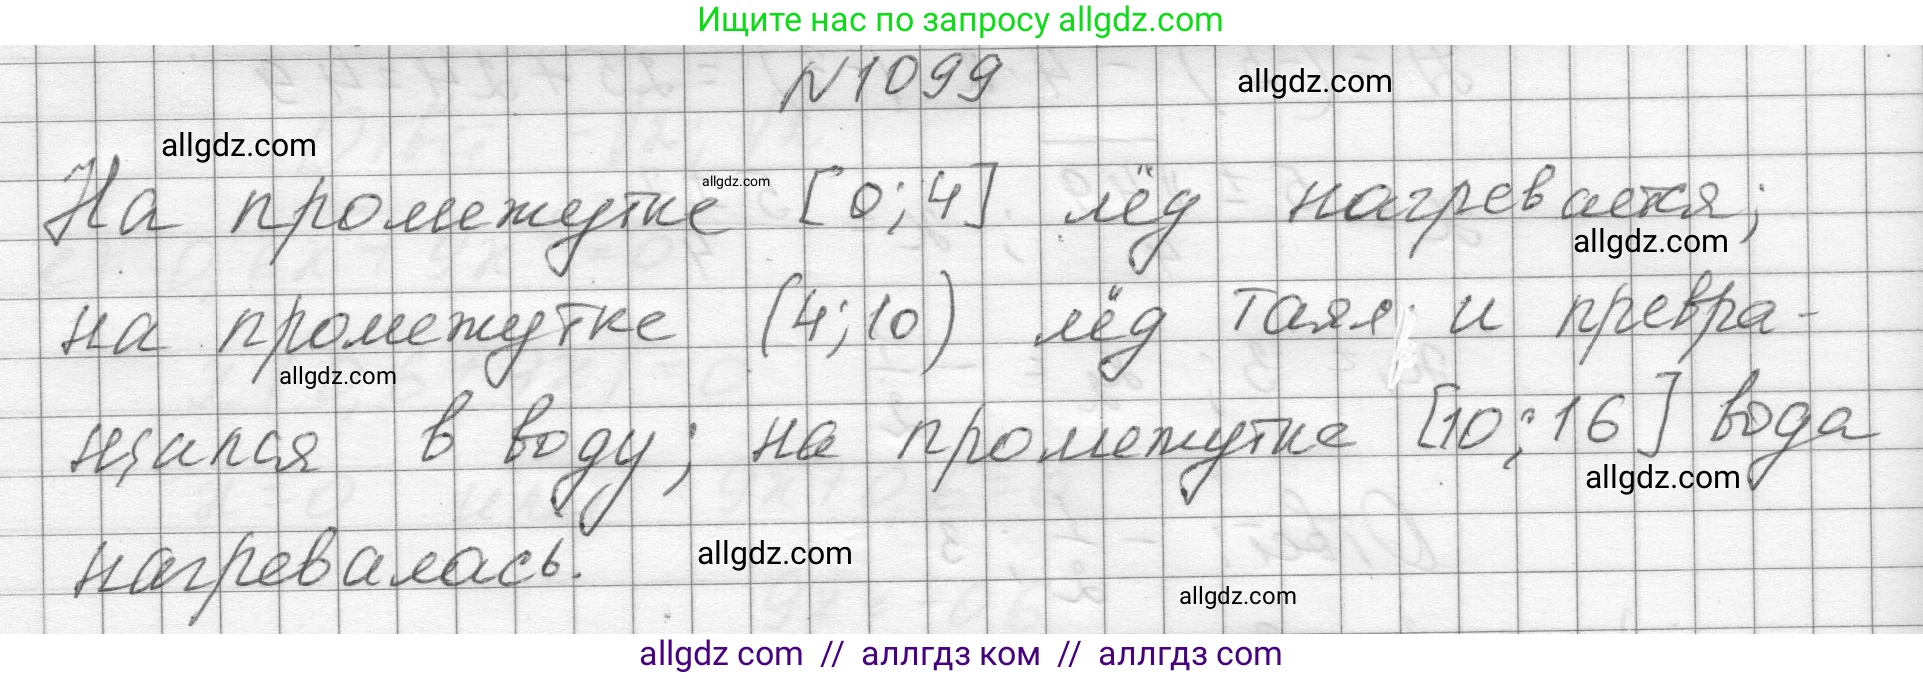 Ищите нас по запросу allgdz.com
N1099
allgdz.com
allgdz.com
На промежутке [0;4] лёд нагревается;
allgdz.com
allgdz.com
на промежутке (4;10) лёд таял и превра-
allgdz.com
щался в воду; на промежутке [10;16] вода
allgdz.com
нагревалась.
allgdz.com
allgdz.com
allgdz com // аллгдз ком // аллгдз com